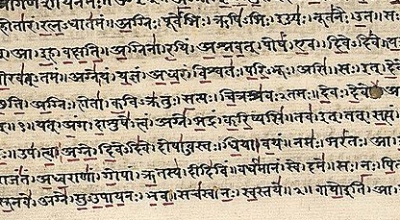 होतारं । रत्नऽधातमं । अग्निः । पूर्वेभिः । ऋषिऽभिः । ईड्यः । नूतनैः । उत । सः ।
आ । इह । वक्षति । अग्निना । रयिं । अश्नवत् । पोषं । एव । दिवेऽदिवे ।
वीरवत्ऽतमं । अग्ने । यं । यज्ञं । अध्वरं । विश्वतः । परिऽभूः । असि । सः । इत् ।
अग्निः । होता । कविऽक्रतुः । सत्यः । चित्रश्रवःऽतमः । देवः ।
यत् । अंग । दाशुषे । त्वं । अग्ने । भद्रं । करिष्यसि । तव । इत् । तत् । सत्यं
उप । त्वा । अग्ने । दिवेऽदिवे । दोषाऽवस्तः । धिया । वयं । नमः । भरंतः । आ
राजंतं । अध्वराणां । गोपां । ऋतस्य । दीदिविं । वर्धमानं । स्वे । दमे । सः । नः ।
सूनवे । अग्ने । सुऽउपायनः । भव । सचस्व । नः । स्वस्तये ॥ वायो इति । आ